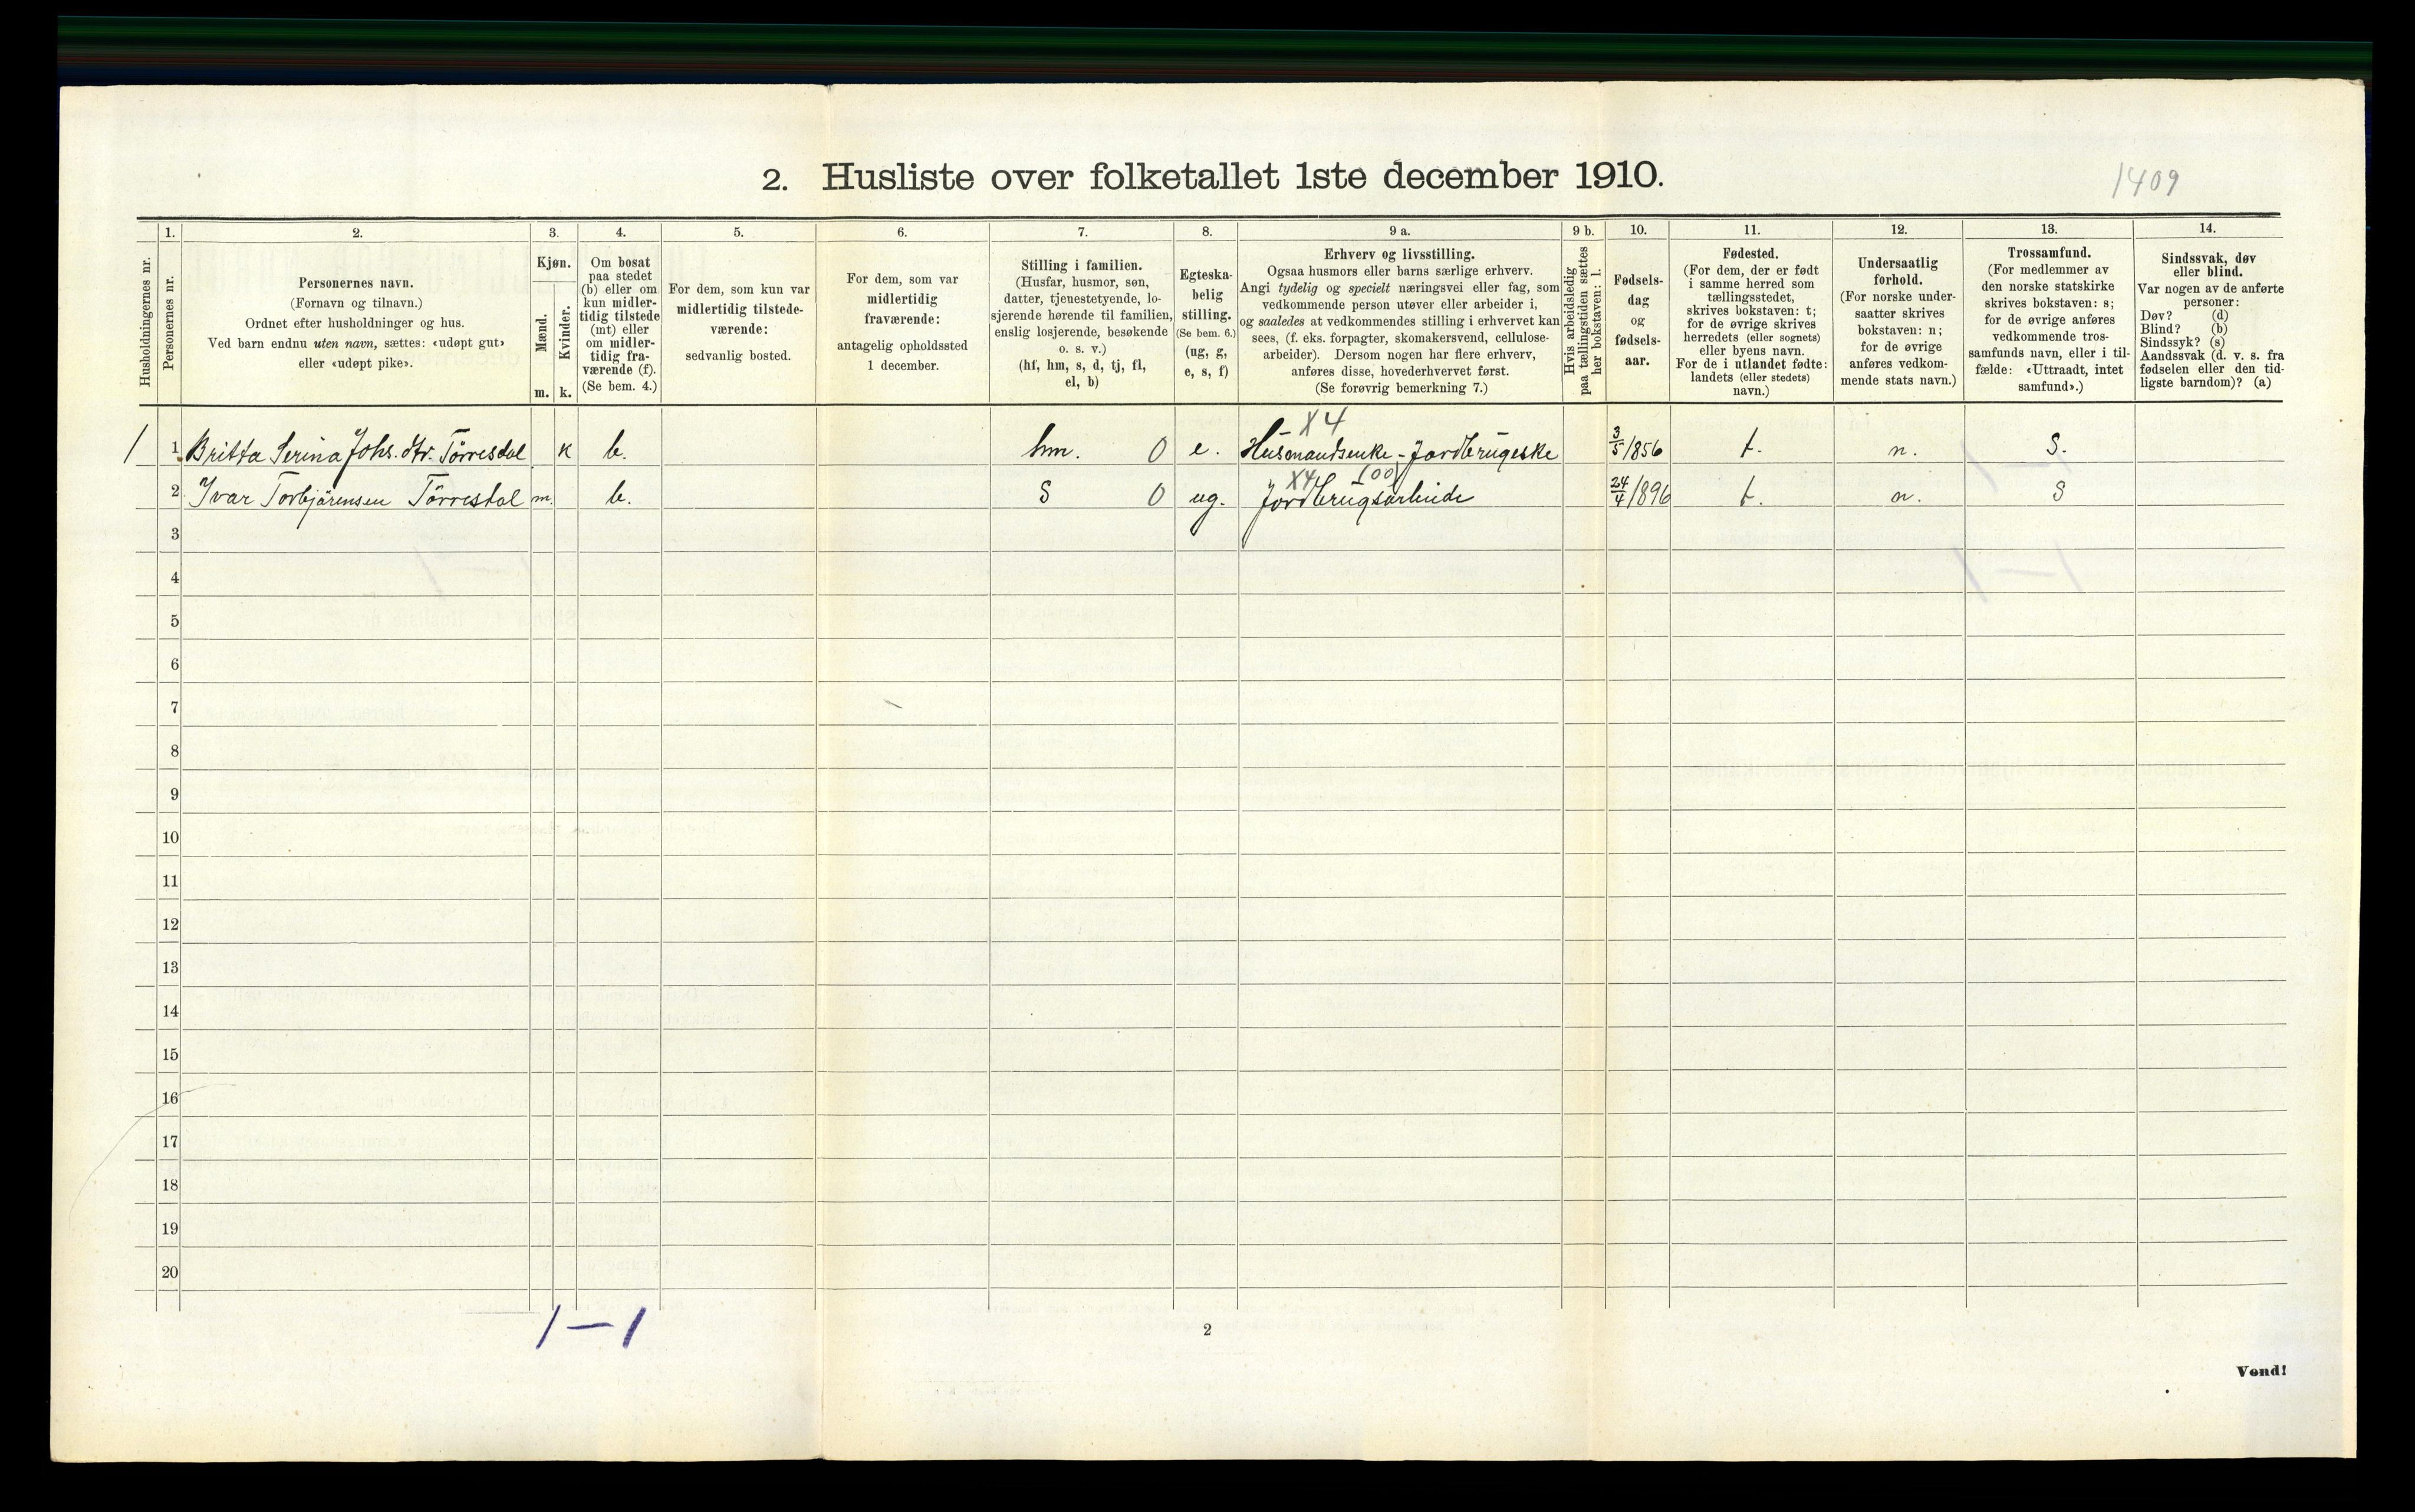 2. Husliste over folketallet 1ste december 1910.
1409
1. 2. 3. 4. 5. 6. 7. 8. 9 a. 9 b. 10. 11. 12. 13. 14.
Husholdningernes nr.
Personernes nr.
Personernes navn.
(Fornavn og tilnavn.)
Ordnet efter husholdninger og hus.
Ved barn endnu uten navn, sættes: «udøpt gut»
eller «udøpt pike».
Kjøn.
Mænd.
Kvinder.
m. k.
Om bosat
paa stedet
(b) eller om
kun midler-
tidig tilstede
(mt) eller
om midler-
tidig fra-
værende (f).
(Se bem. 4.)
For dem, som kun var
midlertidig tilstede-
værende:
sedvanlig bosted.
For dem, som var
midlertidig
fraværende:
antagelig opholdssted
1 december.
Stilling i familien.
(Husfar, husmor, søn,
datter, tjenestetyende, lo-
sjerende hørende til familien,
enslig losjerende, besøkende
o. s. v.)
(hf, hm, s, d, tj, fl,
el, b)
Egteska-
belig
stilling.
(Se bem. 6.)
(ug, g,
e, s, f)
Erhverv og livsstilling.
Ogsaa husmors eller barns særlige erhverv.
Angi tydelig og specielt næringsvei eller fag, som
vedkommende person utøver eller arbeider i,
og saaledes at vedkommendes stilling i erhvervet kan
sees, (f. eks. forpagter, skomakersvend, cellulose-
arbeider). Dersom nogen har flere erhverv,
anføres disse, hovederhvervet først.
(Se forøvrig bemerkning 7.)
Hvis arbeidsledig
paa tællingstiden sættes
her bokstaven: l.
Fødsels-
dag
og
fødsels-
aar.
Fødested.
(For dem, der er født
i samme herred som
tællingsstedet,
skrives bokstaven: t;
for de øvrige skrives
herredets (eller sognets)
eller byens navn.
For de i utlandet fødte:
landets (eller stedets)
navn.)
Undersaatlig
forhold.
(For norske under-
saatter skrives
bokstaven: n;
for de øvrige
anføres vedkom-
mende stats navn.)
Trossamfund.
(For medlemmer av
den norske statskirke
skrives bokstaven: s;
for de øvrige anføres
vedkommende tros-
samfunds navn, eller i til-
fælde: «Uttraadt, intet
samfund».)
Sindssvak, døv
eller blind.
Var nogen av de anførte
personer:
Døv? (d)
Blind? (b)
Sindssyk? (s)
Aandssvak (d. v. s. fra
fødselen eller den tid-
ligste barndom)? (a)
X4
1 1 Britta Serina Johs. dtr. Tørresdal k b. hm. 0 e. Husmandsenke - Jordbrugeske 3/5 1856 t. n. S.
X4 (00)
2 Ivar Torbjørensen Tørresdal m. b. S 0 ug. Jordbrugsarbeide 24/4 1896 t. n. S
3
4
5
6
7
8
9
10
11
12
13
14
15
16
17
18
19
20
1 — 1
2
Vend!